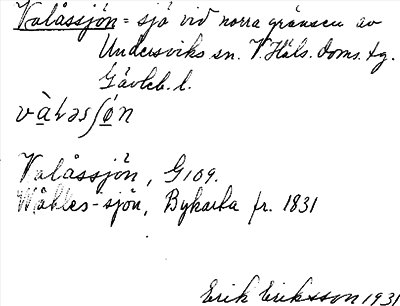 Valåssjön = sjö vid norra gränsen av
Undersviks sn. V. Häls. doms. tg.
Gävleb. l.
Valåssjön, G109.
Wåhles-sjön, Bykarta fr. 1831
Erik Eriksson 1931